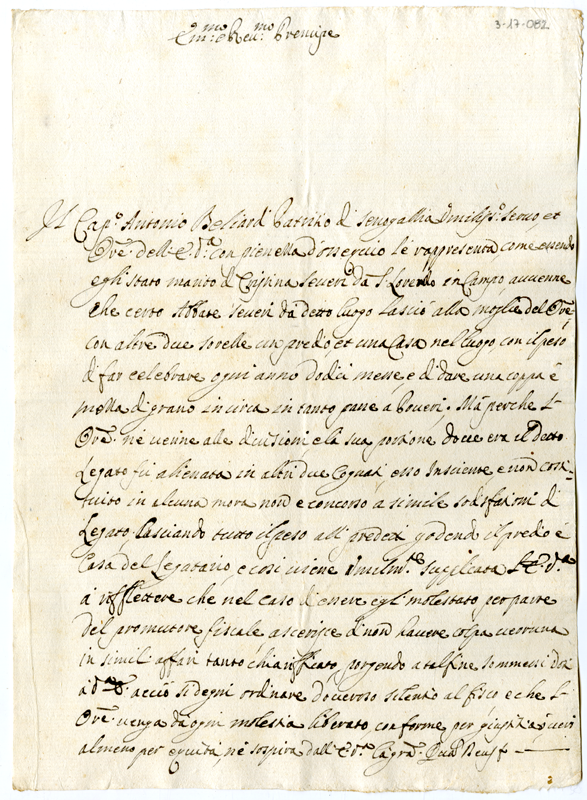 3-17-082
Em:mo e Reu:mo Prencipe
Il Cap:o Antonio Beliardi Patritio di Senogallia Umiliss:o Seruo, et
Ore dell' E. V.a con pienella d'ossequio le rappresenta come essendo
egli stato marito di Cristina Seueri da S. Lorenzo in Campo auuenne
che certo Abbate Seueri da detto luogo lasciò alla moglie del Ore
con altre due sorelle un predio, et una Casa nel luogo con il peso
di far celebrare ogni anno dodici messe, e di dare una coppa è
mezza di grano in circa in tanto pane a Poueri. Mà perche l'
Ore ne uenne alle diuisioni, e la sua portione doue era il detto
Legato fù alienata in altri due Cognati esso Insciente e non costi-
tuito in alcuna mora non è concorso a simile sodisfationi di
Legato lasciando tutto il peso all' predetti godendo il predio è
Casa del Legatario, e così uiene umilm:te supplicata l' E. V.a
à riflettere che nel caso d'essere egli molestato per parte
del promotore fiscale asserisce di non hauere colpa ueruna
in simil' affari tanto chiarificato, porgendo a tal fine
à d:a acciò si degni ordinare doueroso silentio al fisco, e che l'
Ore uenga da ogni molestia liberato, conforme per giustitia
almeno per equità, ne sospira dall' E. V.a la gra. Quam Deus